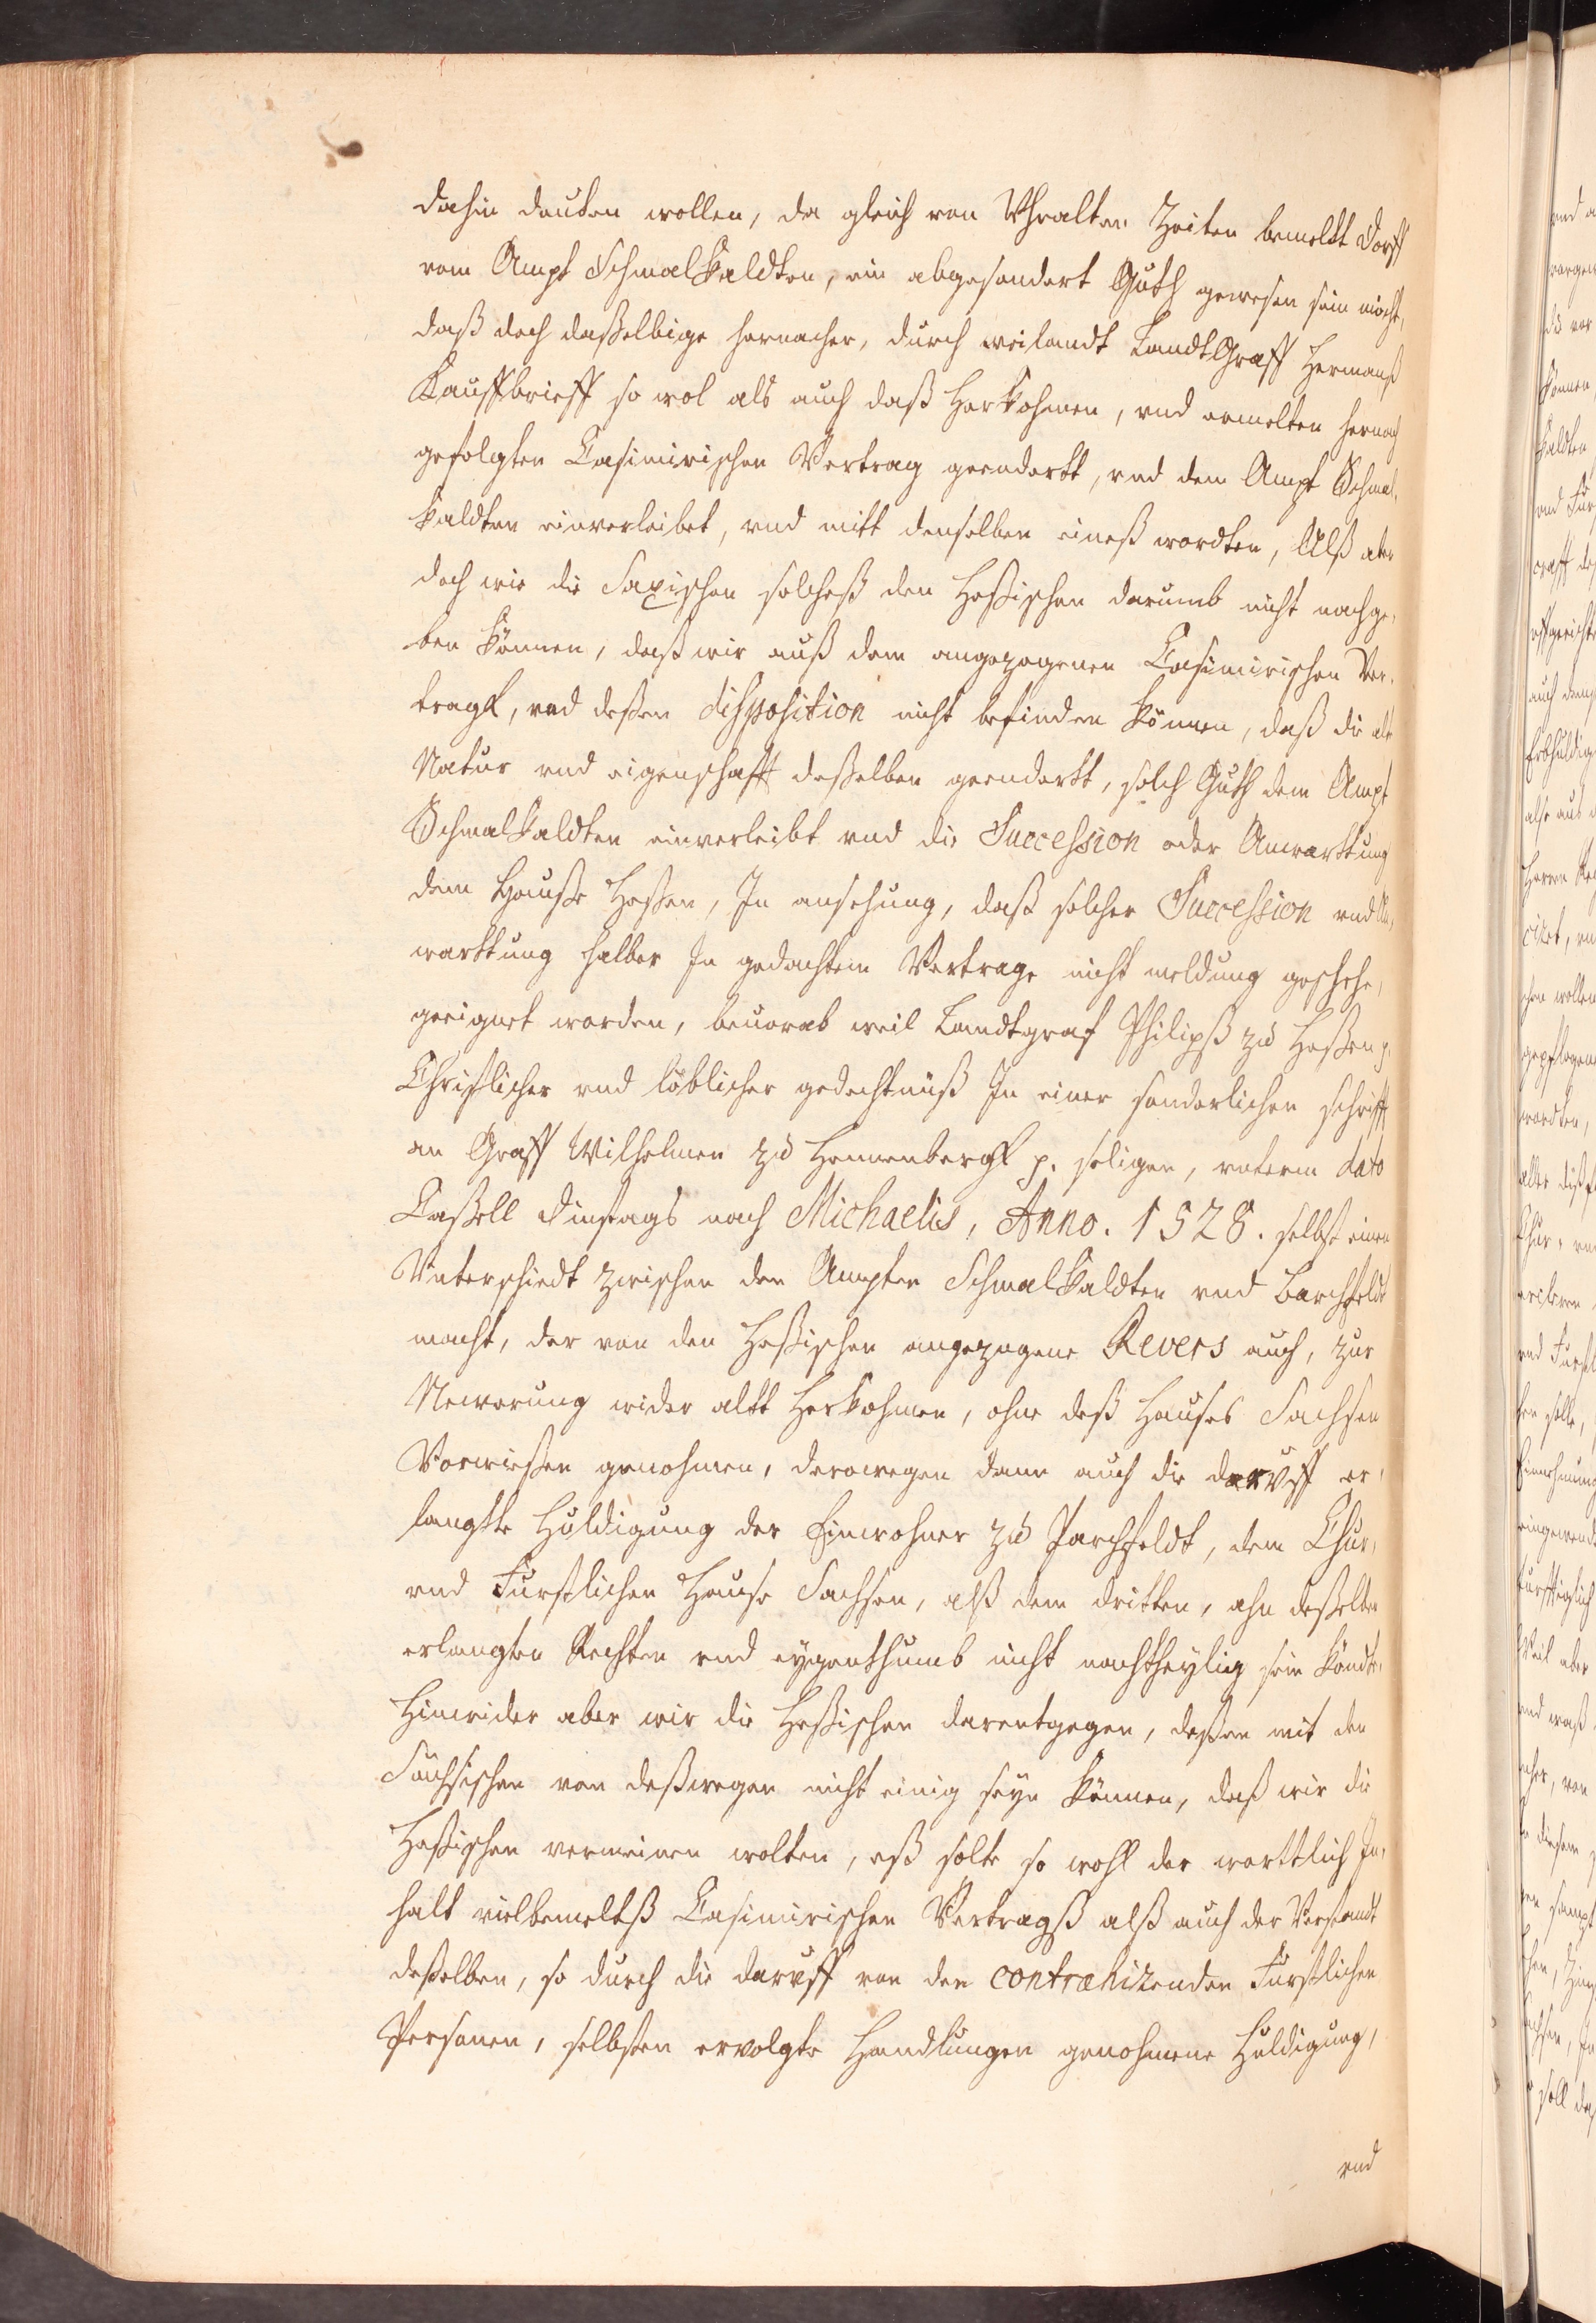 dahin deuten wollen, da gleich von Vhralten Zeiten bemellt Dorff
vom Ampt Schmalkaldten, ein abgesondert Guth gewesen sein möcht,
daß doch daßelbige hernacher, durch weilandt LandtGraff Hermanß
Kauffbrieff so wol als auch daß Herkohmen, vnd ermelten hernach
gefolgten Casimirischen Vertrag geendertt, vnd dem Ampt Schmal,
kaldten einverleibet, vnd mitt denselben eineß wordten, Alß aber
doch wie die Saxischen solcheß den Heßischen darumb nicht nachge,
ben können, daß wir auß dem angezogenen Casimirischen Ver,
tragk, vnd deßen disposition nicht befinden können, daß die alt
Natur vnd eigenschafft deßelben geendertt, solch Guth dem Ampt
Schmalkaldten einverleibt vnd die Succession oder Anwarttung
dem Hauße Heßen, In ansehung, daß solcher Succession vnd An,
warttung halber In gedachtem Vertrage nicht meldung geschehe,
geeignet worden, beuorab weil Landtgraf Philipß zu Heßen p.
Christlicher vnd löblicher gedechtnüß In einer sonderlichen schrifft
an Graff Wilhelmen zu Hennenbergk p. seligen, vnterm dato
Caßell Dinstags nach Michaelis, Anno. 1528. selbst einen
Vnterschiedt zwischen den Ampten Schmalkaldten vnd Barchfeldt
macht, der von den Heßischen angezogene Revers auch, zur
Newerung wider altt Herkohmen, ohne deß Hauses Sachsen
Vorwießen genohmen, derowegen dann auch die darvff er,
langtte Huldigung der Einwohner zu Parchfeldt, dem Chur,
vnd Fürstlichen Hause Sachsen, alß dem dritten, ahn deßelben
erlangten Rechten vnd eygenthumb nicht nachtheylig sein köndte,
Hinwider aber wir die Heßischen darentgegen, deßen mit den
Sachsischen von deßwegen nicht einig seyn können, daß wir die
Heßischen vermeinen wolten, eß solte so wohl der worttlich In,
halt vielbemeltß Casimirischen Vertragß alß auch der Verstandt
deßelben, so durch die darvff von den contrahizenden Fürstlichen
Personen, selbsten ervolgte Handlungen genohmene Huldigung,
vnd